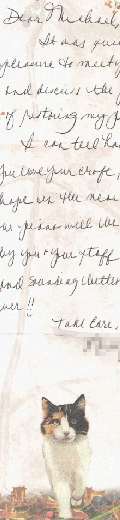 Dear Michael,
It was
pleasure to meet
and discuss the
of restoring my
I can tell
you love your craft,
hope in the near
our pianos will be
by you & your staff
and sounding better
ever!!
Take Care,